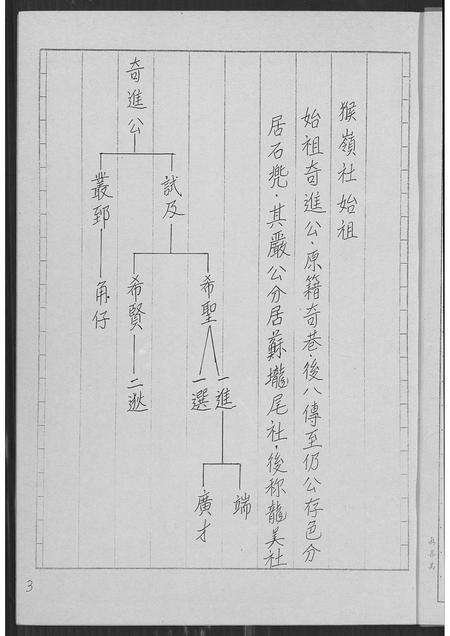 猴嶺社始祖
始祖奇進公.原籍奇巷.後八傳至仍公存色分
居石兠.其嚴公分居蘇壠尾社.後称龍美社
奇進公
試及
叢郅
希聖
希賢
角仔
一進
一選
二逖
端
廣才
3